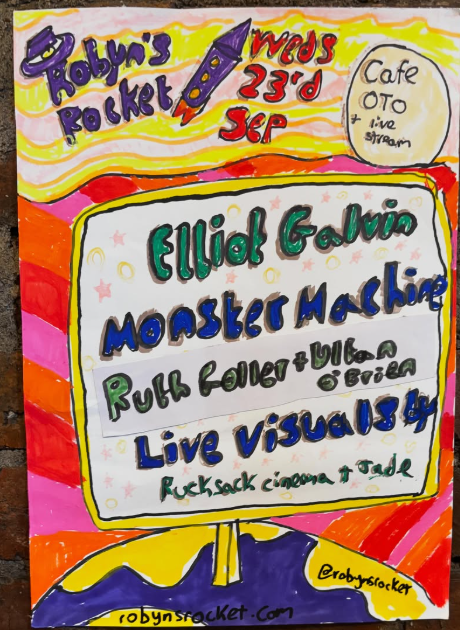 Robyn's
Rocket
Weds
23rd
Sep
Cafe
OTO
+ live
stream
Elliot Galvin
Monster Machine
Ruth Goller + Ultan
O'Brien
Live Visuals by
Rucksack cinema + Jade
@robynsrocket
robynsrocket.com